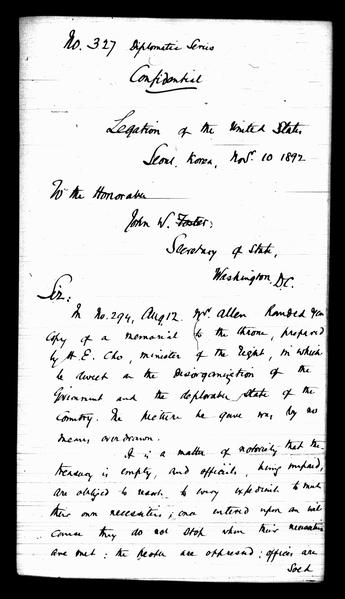 No. 327 Diplomatic Series
Confidential
Legation of the United States
Seoul, Korea, Nov. 10 1892
To the Honorable
John W. Foster,
Secretary of State,
Washington, D.C.
Sir:
In No. 294, Aug. 12 Mr. Allen handed you
copy of a memorial to the throne, prepared
by H. E. Cho, minister of the right, in which
he dwelt on the disorganization of the
Government and the deplorable state of the
Country. The picture he gave was by no
means overdrawn.
It is a matter of notoriety that the
treasury is empty, and officials, being unpaid,
are obliged to resort to every expedient to meet
their own necessities; once entered upon an evil
course they do not stop when their necessities
are met: the people are oppressed; offices are
Sold